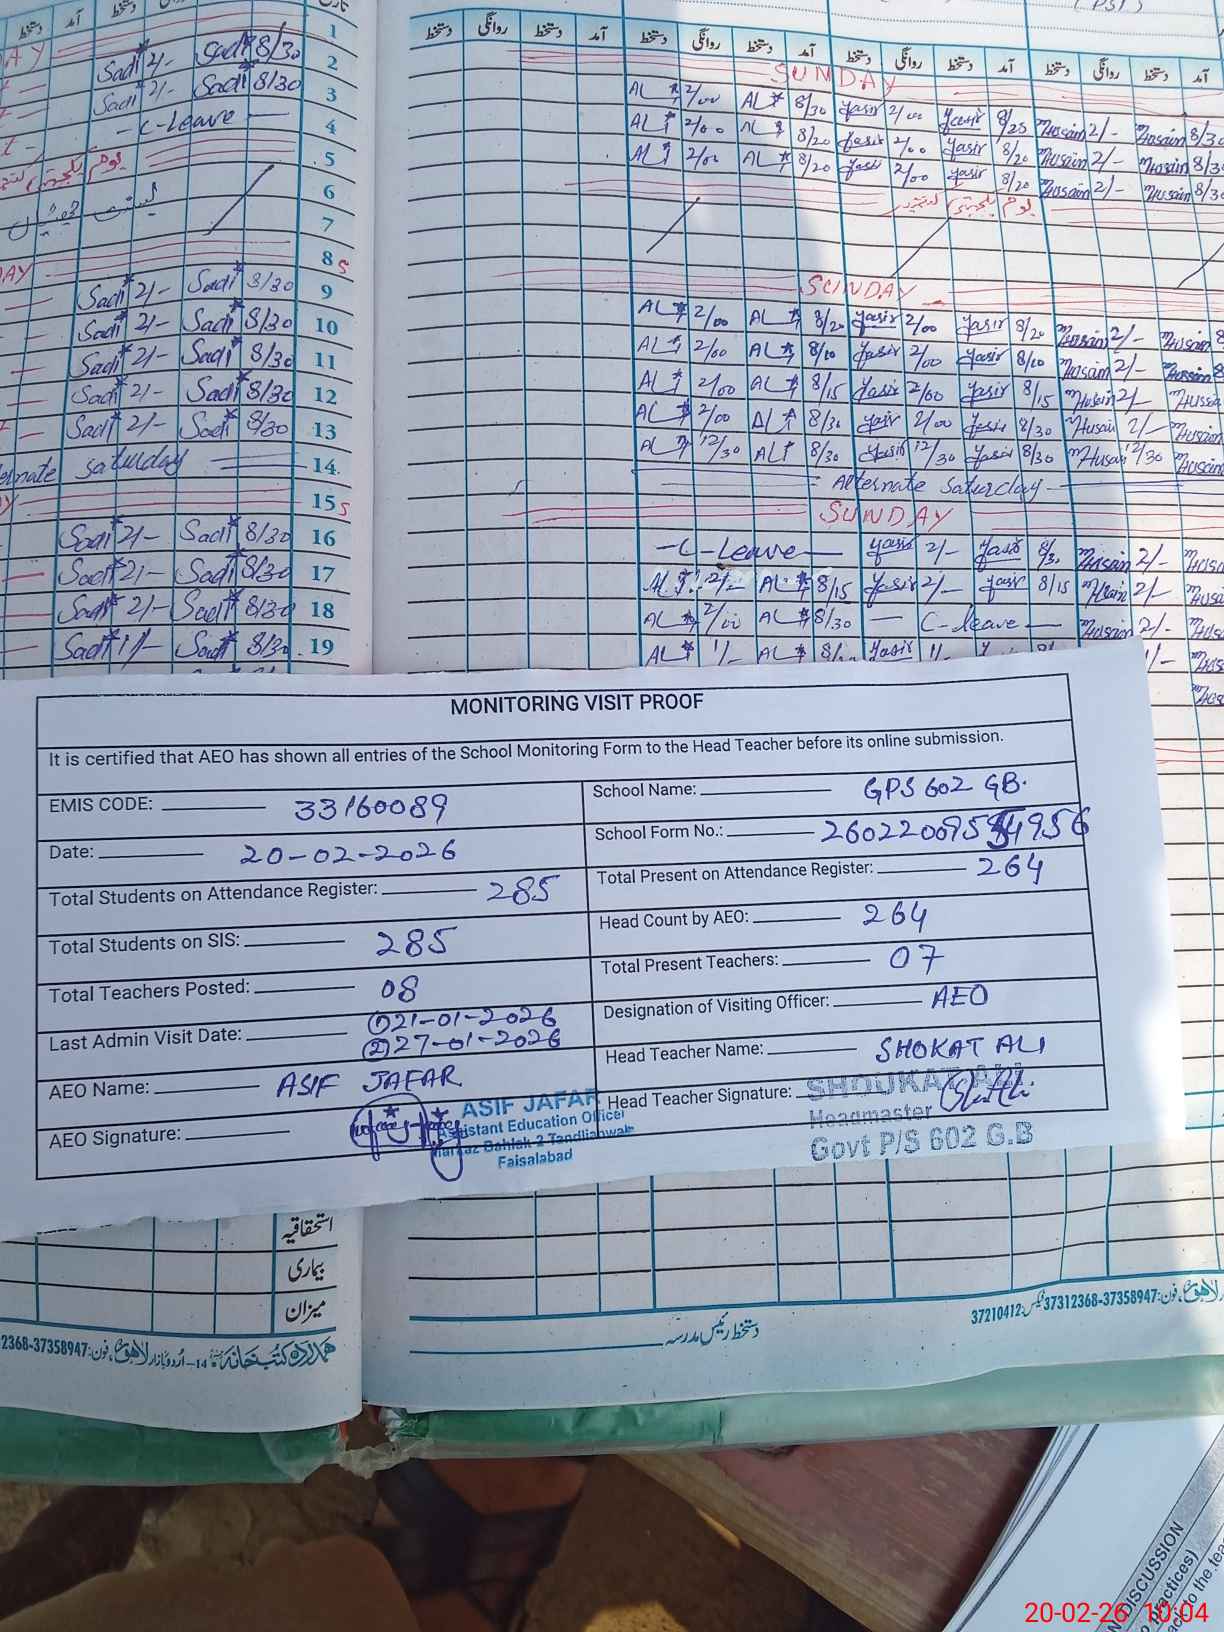 دستخط آمد تاریخ
دستخط روانگی دستخط آمد دستخط روانگی دستخط آمد دستخط روانگی دستخط آمد دستخط روانگی دستخط آمد
1
SUNDAY
Sadi 2/- Sadi 8/30 2
AL 2/00 AL 8/30 Yasir 2/00 Yasir 8/25 Husain 2/- Husain 8/30
Sadi 2/- Sadi 8/30 3
AL 2/00 AL 8/20 Yasir 2/00 Yasir 8/20 Husain 2/- Husain
- C-Leave - 4
AL 2/00 AL 8/20 Yasir 2/00 Yasir 8/20 Husain 2/- Husain
یوم یکجہتی کشمیر 5
یوم یکجہتی کشمیر
6
7
8 S
SUNDAY
Sadi 2/- Sadi 8/30 9
AL 2/00 AL 8/20 Yasir 2/00 Yasir 8/20 Husain 2/- Husain
Sadi 2/- Sadi 8/30 10
AL 2/00 AL 8/10 Yasir 2/00 Yasir 8/10 Husain 2/- Husain
Sadi 2/- Sadi 8/30 11
AL 2/00 AL 8/15 Yasir 2/00 Yasir 8/15 Husain 2/-
Sadi 2/- Sadi 8/30 12
AL 2/00 AL 8/30 Yasir 2/00 Yasir 8/30 Husain 2/- Husain
Sadi 2/- Sadi 8/30 13
AL 12/30 AL 8/30 Yasir 12/30 Yasir 8/30 Husain 12/30 Husain
ernate saturday 14
Alternate Saturday
15 S
SUNDAY
Sadi 2/- Sadi 8/30 16
-C-Leave- Yasir 2/- Yasir Husain 2/-
Sadi 2/- Sadi 8/30 17
AL 2/- AL 8/15 Yasir 2/- Yasir 8/15 Husain 2/-
Sadi 2/- Sadi 8/30 18
AL 2/00 AL 8/30 - C-leave - Husain 2/-
Sadi 1/- Sadi 8/30 19
AL 1/- AL Yasir 1/-
MONITORING VISIT PROOF
It is certified that AEO has shown all entries of the School Monitoring Form to the Head Teacher before its online submission.
EMIS CODE: 33160089
School Name: GPS 602 GB.
Date: 20-02-2026
School Form No.:
Total Students on Attendance Register: 285
Total Present on Attendance Register: 264
Total Students on SIS: 285
Head Count by AEO: 264
Total Teachers Posted: 08
Total Present Teachers: 07
Last Admin Visit Date: ① 21-01-2026
② 27-01-2026
Designation of Visiting Officer: AEO
AEO Name: ASIF JAFAR
Head Teacher Name: SHOKAT ALI
AEO Signature:
Head Teacher Signature:
ASIF JAFAR
Assistant Education Officer
Markaz Bahlak 2 Tandlianwala
Faisalabad
SHOUKAT ALI
Headmaster
Govt P/S 602 G.B
استحقاقیہ
بیماری
میزان
دستخط رئیس مدرسہ
لاہور، فون: 37358947-37312368 فیکس: 37210412
ہمدرد کتب خانہ 14-اردو بازار لاہور، فون: 37358947-2368
DISCUSSION
practices)
to the tea
20-02-26 10:04